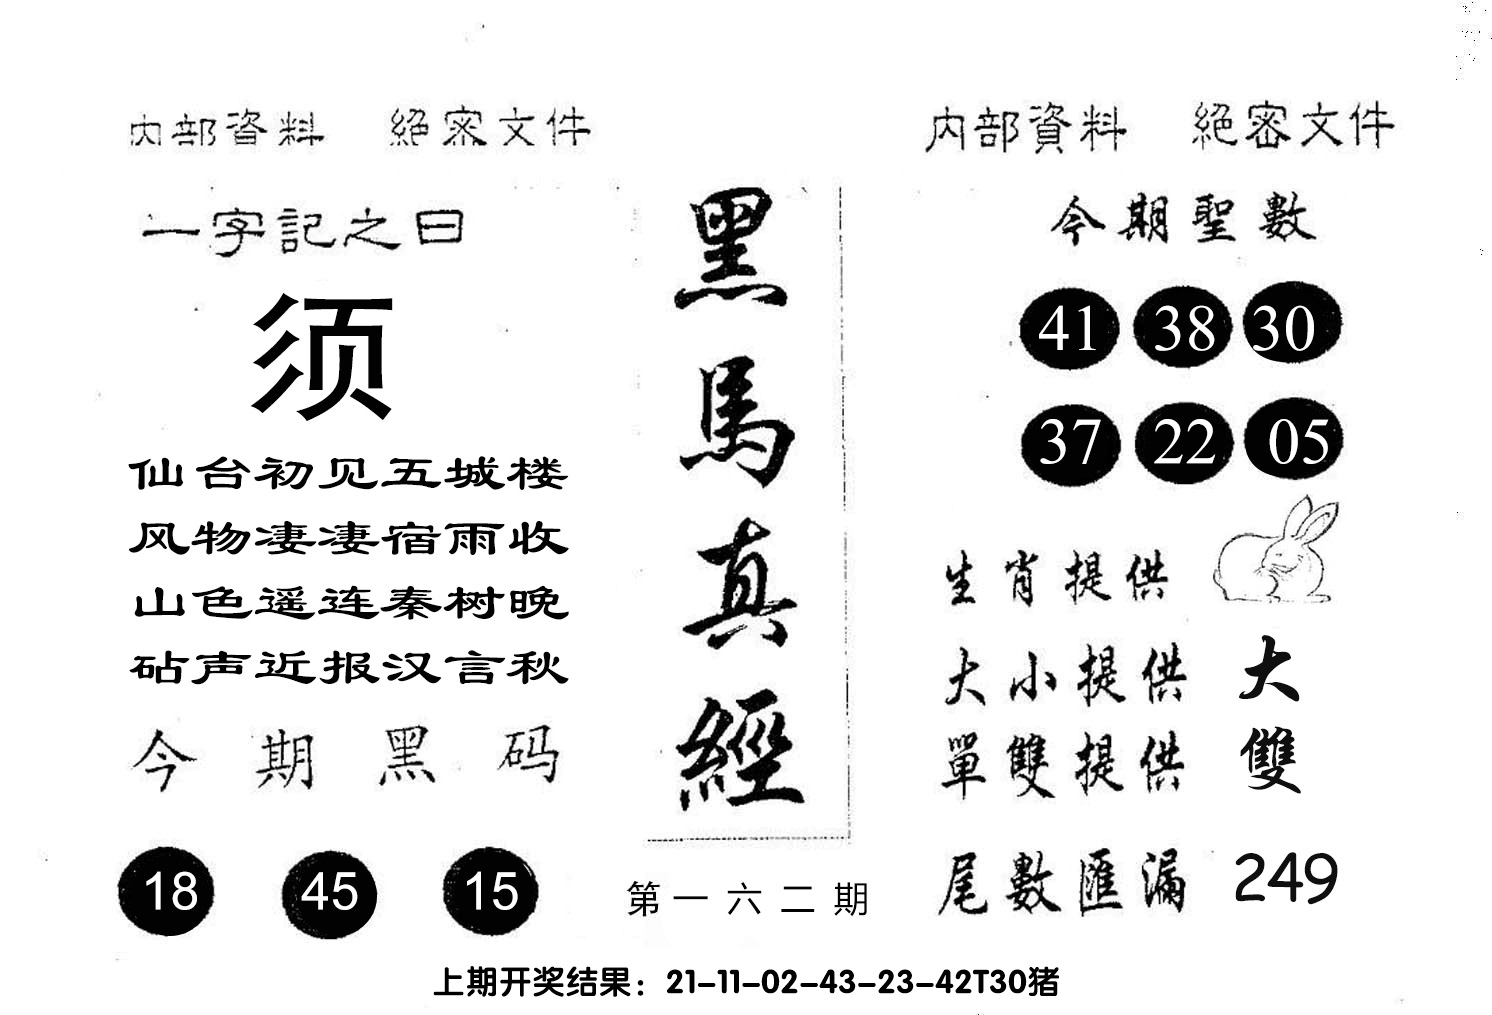 内部資料 絕密文件
一字記之曰
须
仙台初见五城楼
风物凄凄宿雨收
山色遥连秦树晚
砧声近报汉言秋
今期黑码
18 45 15
黑馬真經
第一六二期
内部資料 絕密文件
今期聖數
41 38 30
37 22 05
生肖提供
大小提供 大
單雙提供 雙
尾數匯漏 249
上期开奖结果：21-11-02-43-23-42T30猪